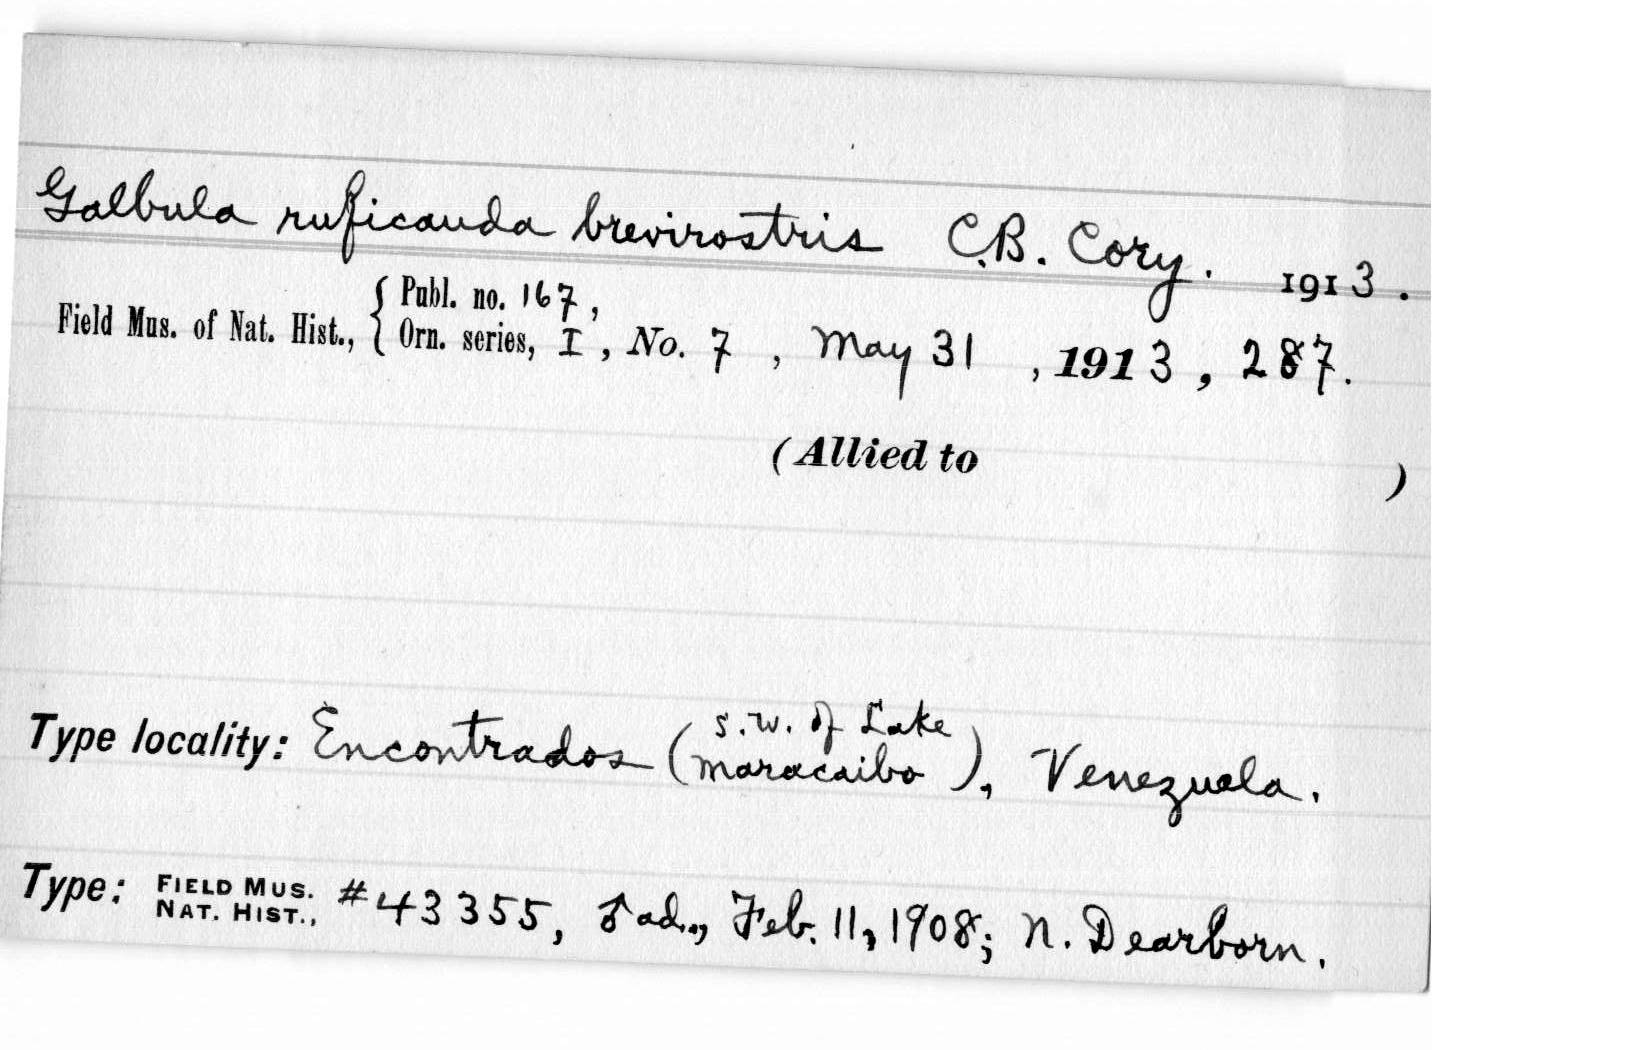 Galbula ruficauda brevirostris C.B. Cory. 1913.
Field Mus. of Nat. Hist., { Publ. no. 167,
Orn. series, I, No. 7, May 31, 1913, 287.
(Allied to )
Type locality: Encontrados (S.W. of Lake Maracaibo), Venezuela.
Type: FIELD MUS. NAT. HIST., #43355, ♂ ad., Feb. 11, 1908; N. Dearborn.